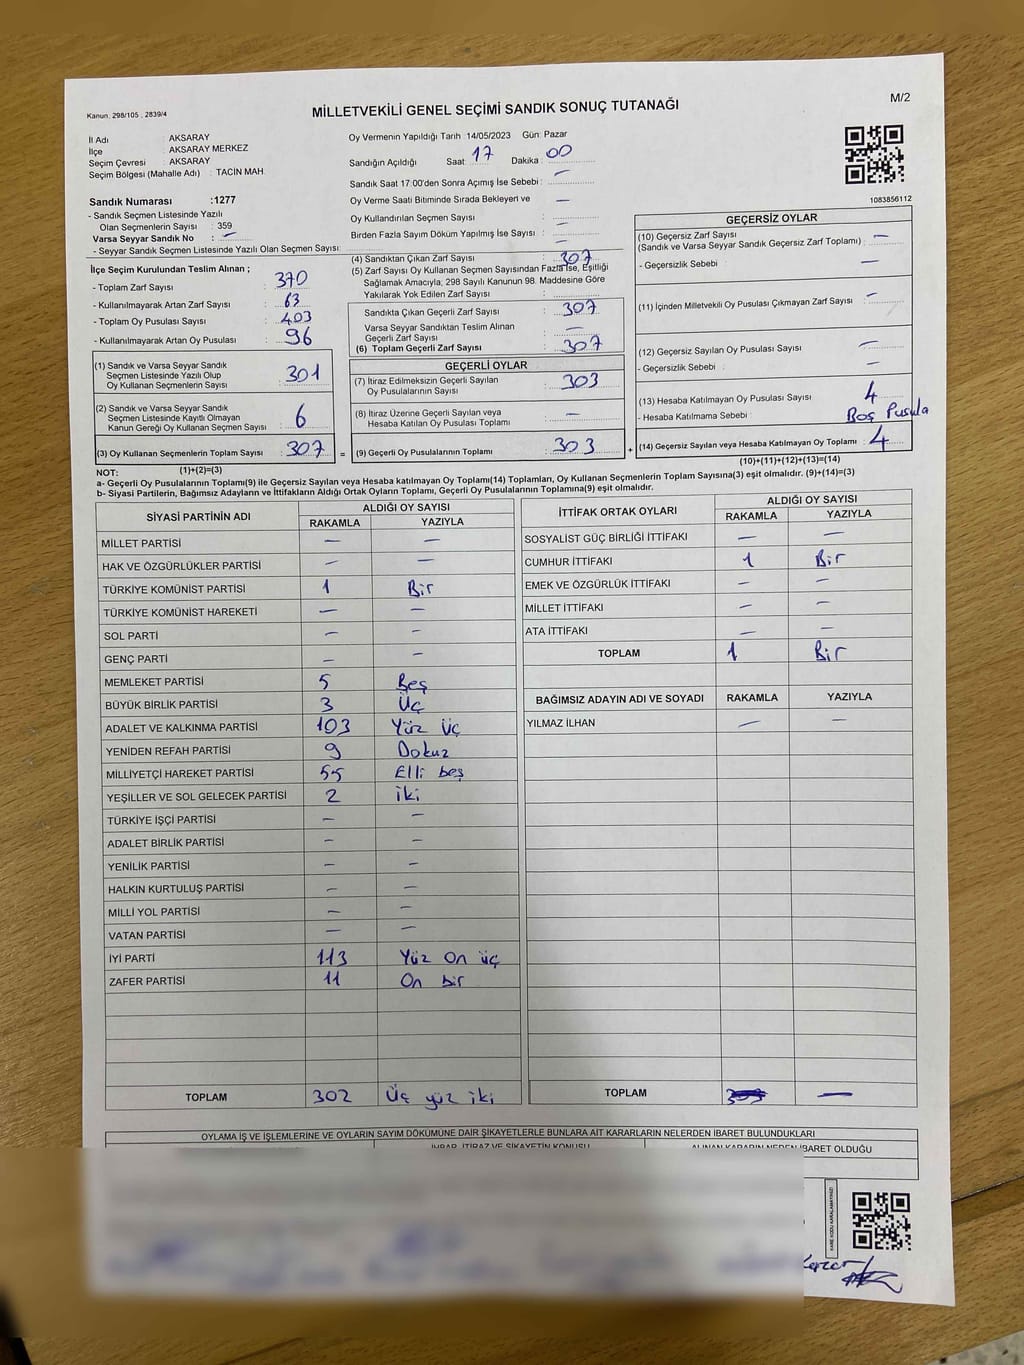 M/2
Kanun: 298/105 , 2839/4
MİLLETVEKİLİ GENEL SEÇİMİ SANDIK SONUÇ TUTANAĞI
İl Adı : AKSARAY
İlçe : AKSARAY MERKEZ
Seçim Çevresi : AKSARAY
Seçim Bölgesi (Mahalle Adı) : TACİN MAH.
Oy Vermenin Yapıldığı Tarih :14/05/2023 Gün: Pazar
Sandığın Açıldığı Saat: 17 Dakika : 00
Sandık Saat 17:00'den Sonra Açımış İse Sebebi : —
Oy Verme Saati Bitiminde Sırada Bekleyen ve
Oy Kullandırılan Seçmen Sayısı : —
Birden Fazla Sayım Döküm Yapılmış İse Sayısı : —
1083856112
Sandık Numarası :1277
- Sandık Seçmen Listesinde Yazılı
Olan Seçmenlerin Sayısı : 359
Varsa Seyyar Sandık No : —
- Seyyar Sandık Seçmen Listesinde Yazılı Olan Seçmen Sayısı:
İlçe Seçim Kurulundan Teslim Alınan ;
- Toplam Zarf Sayısı : 370
- Kullanılmayarak Artan Zarf Sayısı : 63
- Toplam Oy Pusulası Sayısı : 403
- Kullanılmayarak Artan Oy Pusulası : 96
(1) Sandık ve Varsa Seyyar Sandık
Seçmen Listesinde Yazılı Olup
Oy Kullanan Seçmenlerin Sayısı : 301
(2) Sandık ve Varsa Seyyar Sandık
Seçmen Listesinde Kayıtlı Olmayan
Kanun Gereği Oy Kullanan Seçmen Sayısı : 6
(3) Oy Kullanan Seçmenlerin Toplam Sayısı : 307
(1)+(2)=(3)
(4) Sandıktan Çıkan Zarf Sayısı : 307
(5) Zarf Sayısı Oy Kullanan Seçmen Sayısından Fazla İse, Eşitliği
Sağlamak Amacıyla, 298 Sayılı Kanunun 98. Maddesine Göre
Yakılarak Yok Edilen Zarf Sayısı :
Sandıkta Çıkan Geçerli Zarf Sayısı : 307
Varsa Seyyar Sandıktan Teslim Alınan
Geçerli Zarf Sayısı : —
(6) Toplam Geçerli Zarf Sayısı : 307
GEÇERLİ OYLAR
(7) İtiraz Edilmeksizin Geçerli Sayılan
Oy Pusulalarının Sayısı : 303
(8) İtiraz Üzerine Geçerli Sayılan veya
Hesaba Katılan Oy Pusulası Toplamı : —
= (9) Geçerli Oy Pusulalarının Toplamı : 303 +
GEÇERSİZ OYLAR
(10) Geçersiz Zarf Sayısı
(Sandık ve Varsa Seyyar Sandık Geçersiz Zarf Toplamı) : —
- Geçersizlik Sebebi : —
(11) İçinden Milletvekili Oy Pusulası Çıkmayan Zarf Sayısı : —
(12) Geçersiz Sayılan Oy Pusulası Sayısı : —
- Geçersizlik Sebebi : —
(13) Hesaba Katılmayan Oy Pusulası Sayısı : 4
- Hesaba Katılmama Sebebi : Boş Pusula
(14) Geçersiz Sayılan veya Hesaba Katılmayan Oy Toplamı : 4
(10)+(11)+(12)+(13)=(14)
NOT:
a- Geçerli Oy Pusulalarının Toplamı(9) ile Geçersiz Sayılan veya Hesaba Katılmayan Oy Toplamı(14) Toplamları, Oy Kullanan Seçmenlerin Toplam Sayısına(3) eşit olmalıdır. (9)+(14)=(3)
b- Siyasi Partilerin, Bağımsız Adayların ve İttifakların Aldığı Ortak Oyların Toplamı, Geçerli Oy Pusulalarının Toplamına(9) eşit olmalıdır.
SİYASİ PARTİNİN ADI ALDIĞI OY SAYISI
RAKAMLA YAZIYLA
MİLLET PARTİSİ — —
HAK VE ÖZGÜRLÜKLER PARTİSİ — —
TÜRKİYE KOMÜNİST PARTİSİ 1 Bir
TÜRKİYE KOMÜNİST HAREKETİ — —
SOL PARTİ — —
GENÇ PARTİ — —
MEMLEKET PARTİSİ 5 Beş
BÜYÜK BİRLİK PARTİSİ 3 Üç
ADALET VE KALKINMA PARTİSİ 103 Yüz Üç
YENİDEN REFAH PARTİSİ 9 Dokuz
MİLLİYETÇİ HAREKET PARTİSİ 55 Elli beş
YEŞİLLER VE SOL GELECEK PARTİSİ 2 iki
TÜRKİYE İŞÇİ PARTİSİ — —
ADALET BİRLİK PARTİSİ — —
YENİLİK PARTİSİ — —
HALKIN KURTULUŞ PARTİSİ — —
MİLLİ YOL PARTİSİ — —
VATAN PARTİSİ — —
İYİ PARTİ 113 Yüz On üç
ZAFER PARTİSİ 11 On bir
TOPLAM 302 Üç yüz iki
İTTİFAK ORTAK OYLARI ALDIĞI OY SAYISI
RAKAMLA YAZIYLA
SOSYALİST GÜÇ BİRLİĞİ İTTİFAKI — —
CUMHUR İTTİFAKI 1 Bir
EMEK VE ÖZGÜRLÜK İTTİFAKI — —
MİLLET İTTİFAKI — —
ATA İTTİFAKI — —
TOPLAM 1 Bir
BAĞIMSIZ ADAYIN ADI VE SOYADI RAKAMLA YAZIYLA
YILMAZ İLHAN — —
TOPLAM 303 —
OYLAMA İŞ VE İŞLEMLERİNE VE OYLARIN SAYIM DÖKÜMÜNE DAİR ŞİKAYETLERLE BUNLARA AİT KARARLARIN NELERDEN İBARET BULUNDUKLARI
İHBAR, İTİRAZ VE ŞİKAYETİN KONUSU ALINAN KARARIN NEDEN İBARET OLDUĞU
KARE KODU KARALAMAYINIZ!